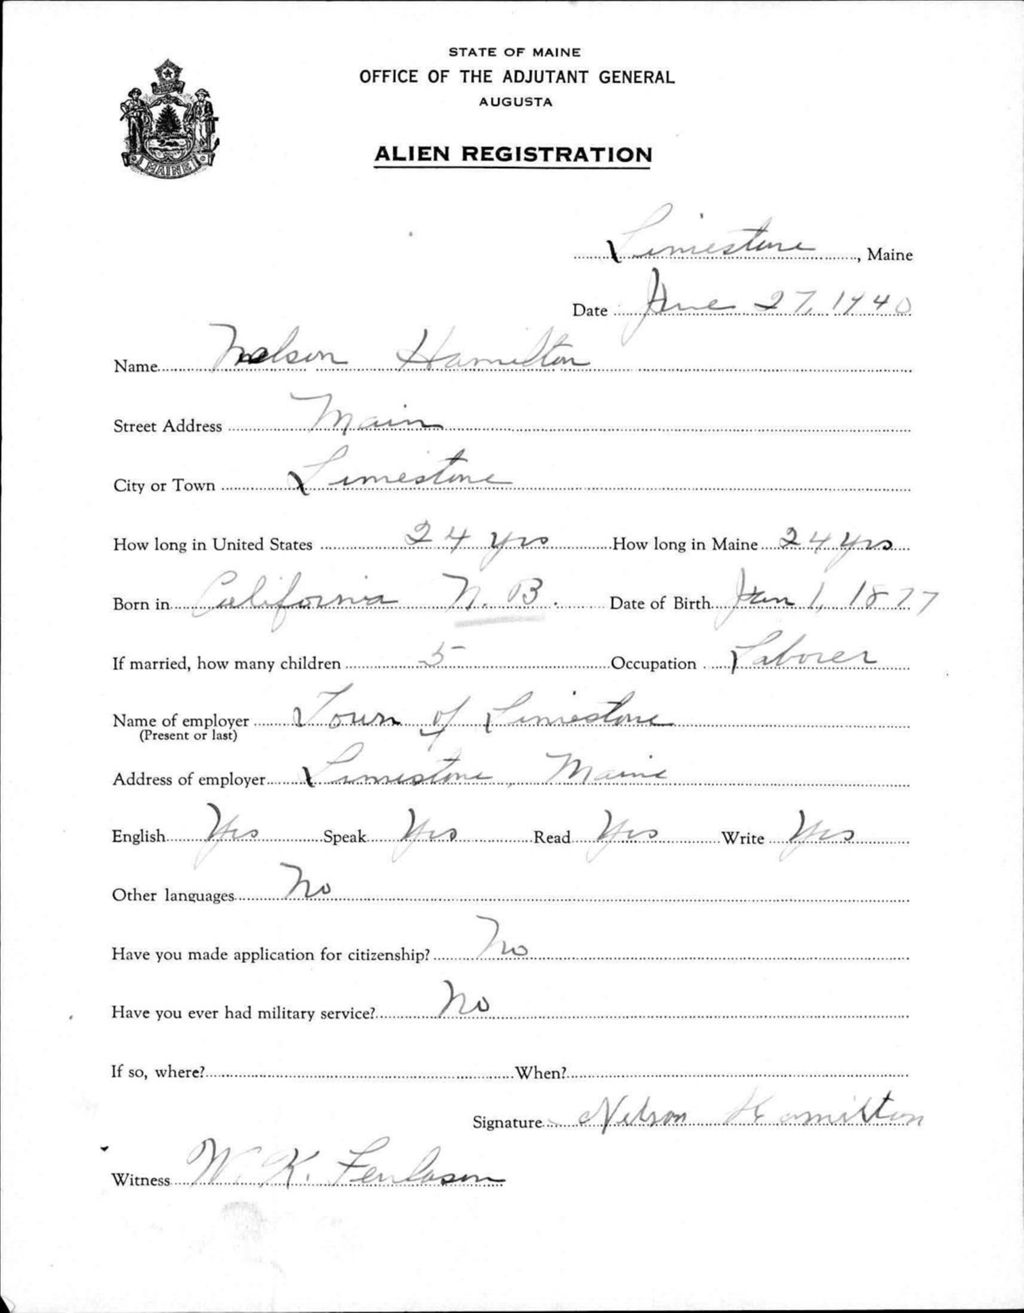 STATE OF MAINE
OFFICE OF THE ADJUTANT GENERAL
AUGUSTA
ALIEN REGISTRATION
MAINE
Limestone, Maine
Date June 27, 1940
Name Nelson Hamilton
Street Address Main
City or Town Limestone
How long in United States 24 yrs How long in Maine 24 yrs
Born in California N. B. Date of Birth Jan 1, 1877
If married, how many children 5 Occupation Laborer
Name of employer Town of Limestone
(Present or last)
Address of employer Limestone, Maine
English Yes Speak Yes Read Yes Write Yes
Other languages No
Have you made application for citizenship? No
Have you ever had military service? No
If so, where? When?
Signature Nelson Hamilton
Witness W. K. Fenlason